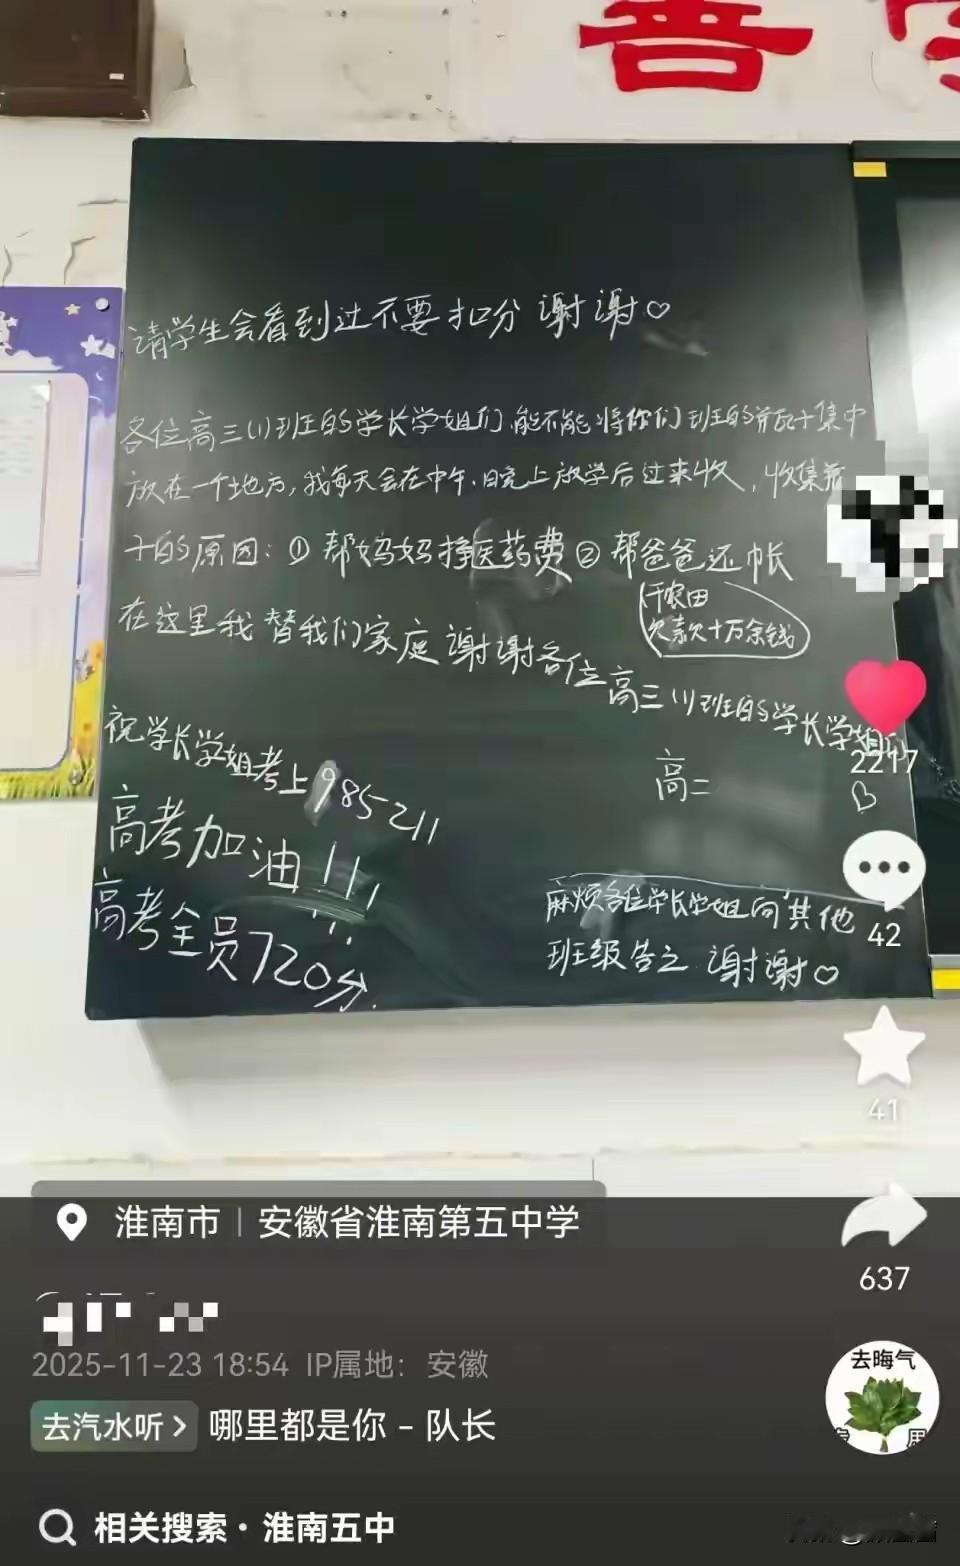 请学生会看到过不要扣分 谢谢♡
各位高三(1)班的学长学姐们,能不能将你们班的瓶子集中
放在一个地方,我每天会在中午、晚上放学后过来收,收集瓶
子的原因:① 帮妈妈挣医药费② 帮爸爸还帐
干农田
欠款欠十万余钱
在这里我替我们家庭谢谢各位高三(1)班的学长学姐们
高二
祝学长学姐考上985211
高考加油!!!
高考全员720分.
麻烦各位学长学姐向其他
班级告之 谢谢♡
2217
42
41
637
淮南市 | 安徽省淮南第五中学
2025-11-23 18:54 IP属地:安徽
去汽水听 > 哪里都是你 - 队长
去晦气
相关搜索 · 淮南五中